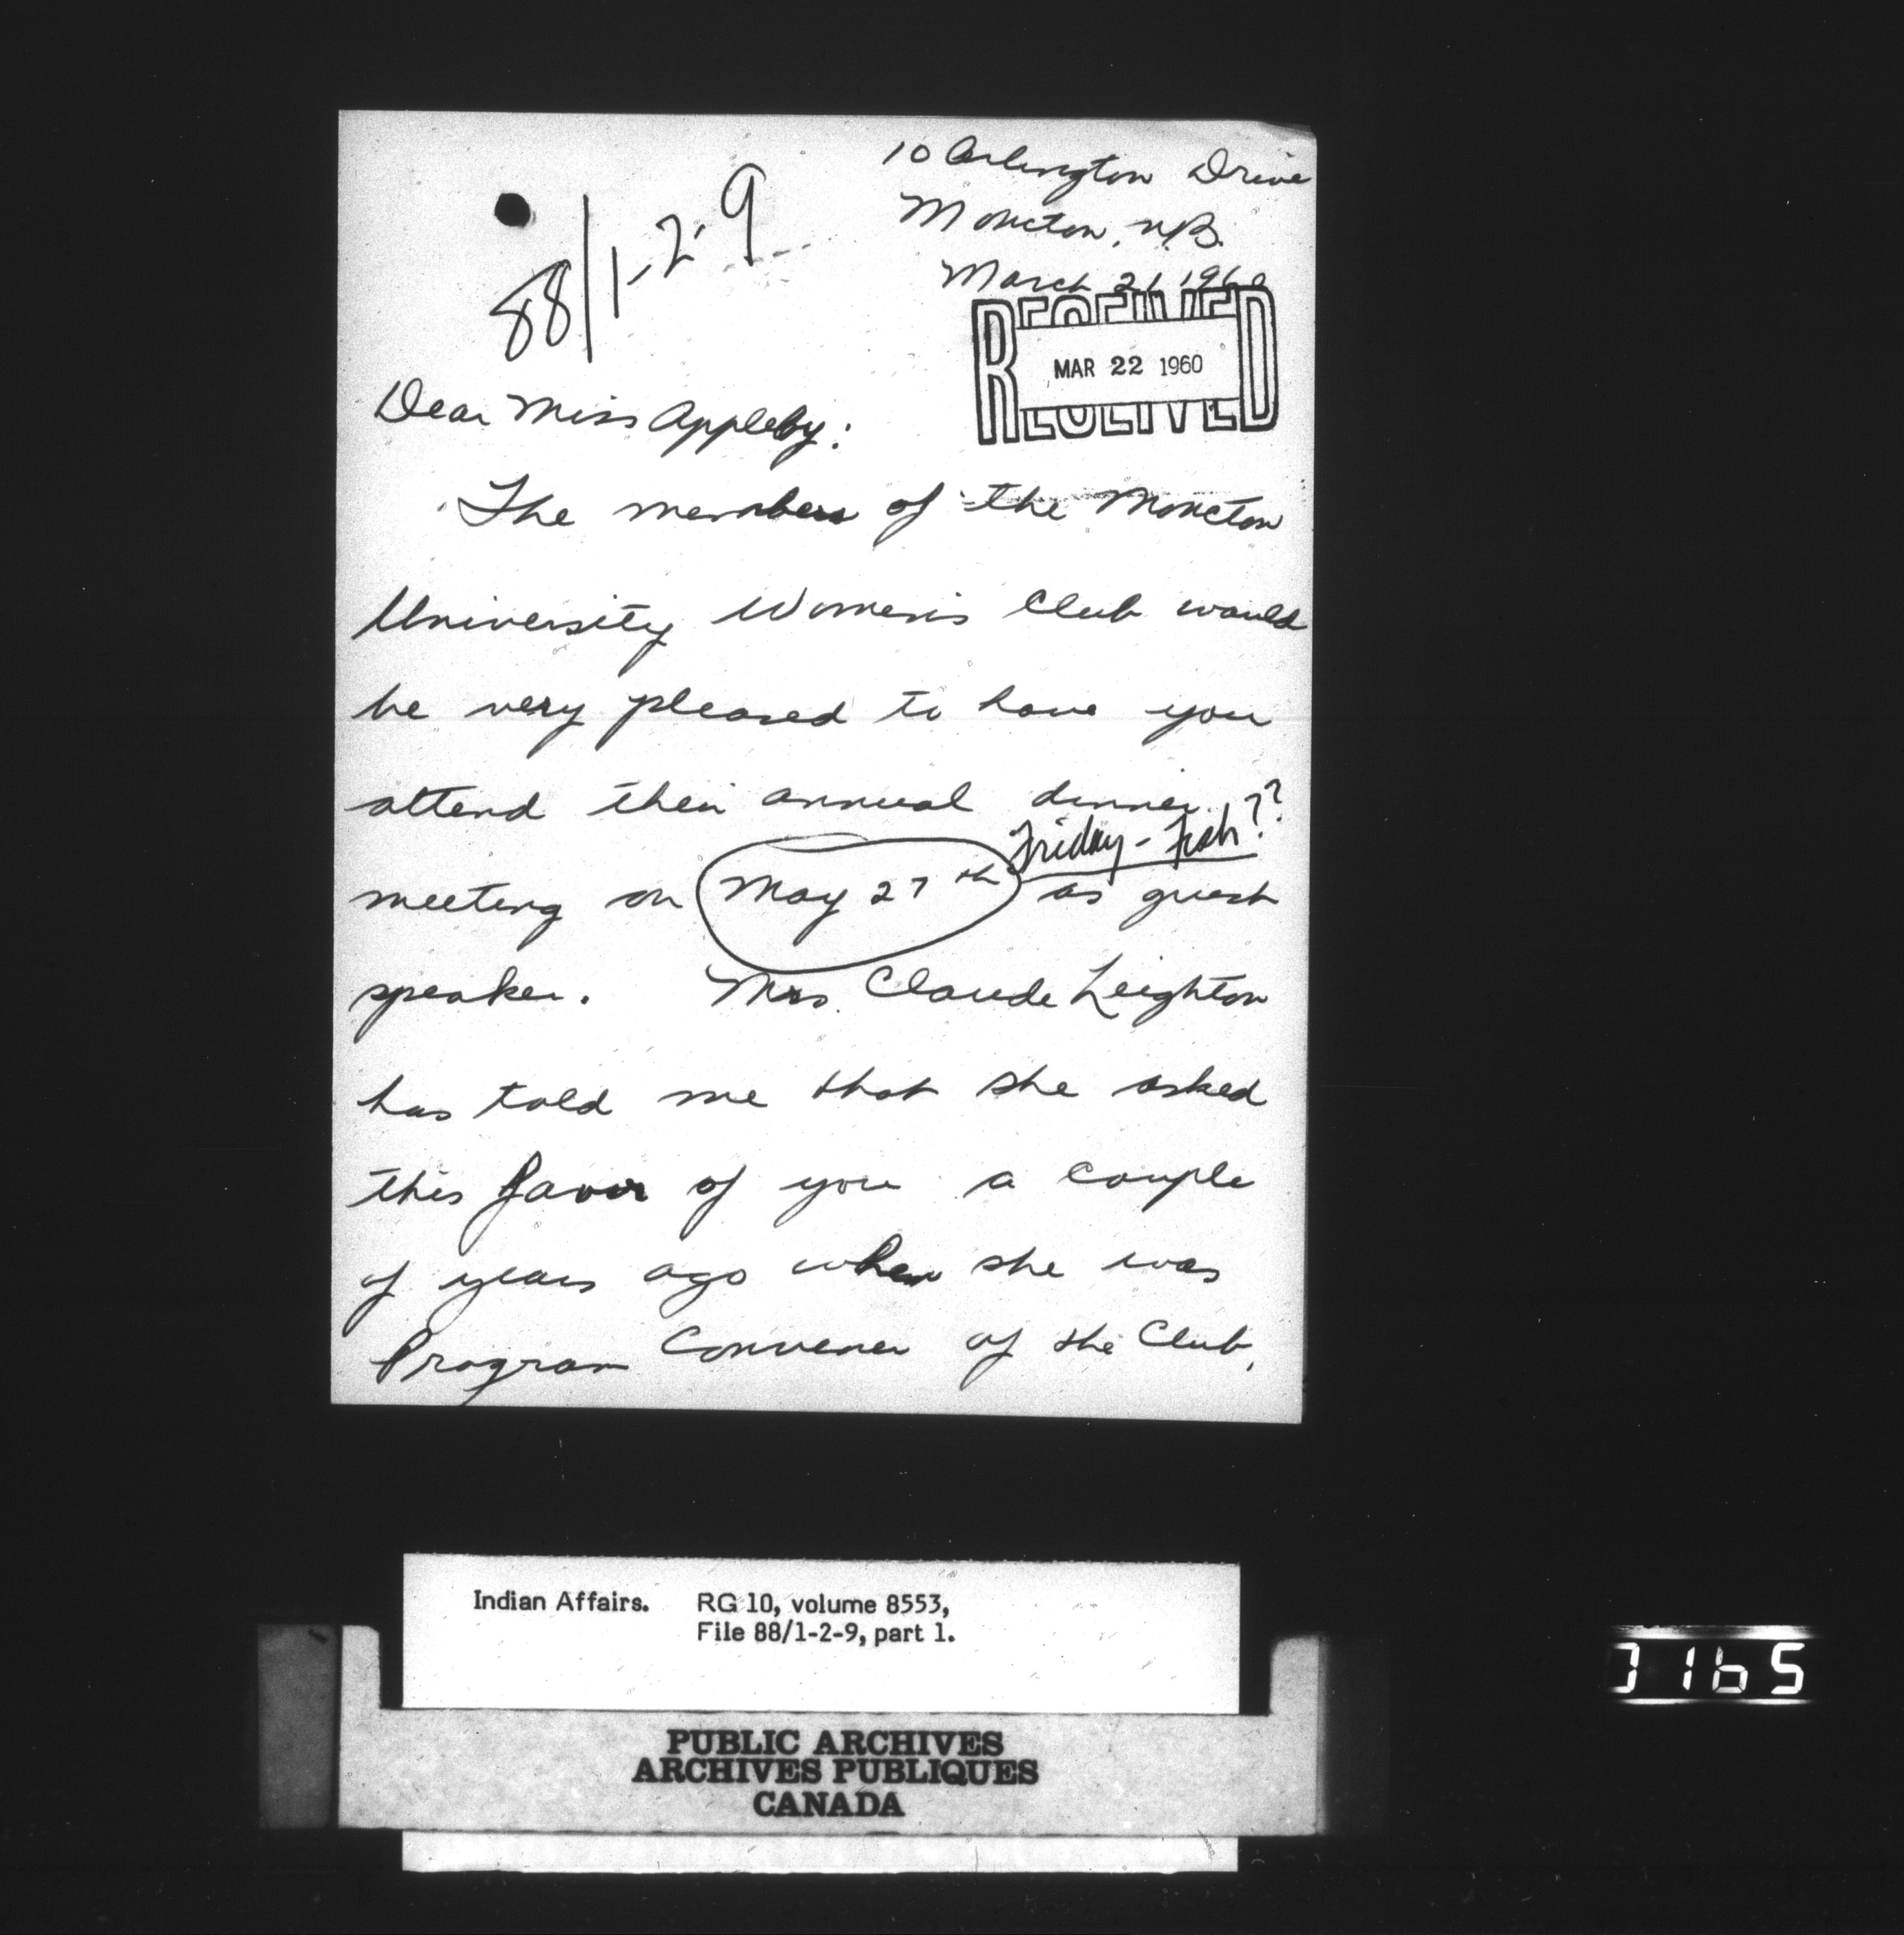 10 Arlington Drive
Moncton, N.B.
March 21 1960
88/1-2-9
RECEIVED
MAR 22 1960
RECEIVED
Dear Miss Appleby:
The members of the Moncton
University Women's Club would
be very pleased to have you
attend their annual dinner
Friday - Fish??
meeting on May 27th as guest
speaker. Mrs. Claude Leighton
has told me that she asked
this favor of you a couple
of years ago when she was
Program Convener of the Club,
Indian Affairs. RG 10, volume 8553,
File 88/1-2-9, part 1.
7165
PUBLIC ARCHIVES
ARCHIVES PUBLIQUES
CANADA